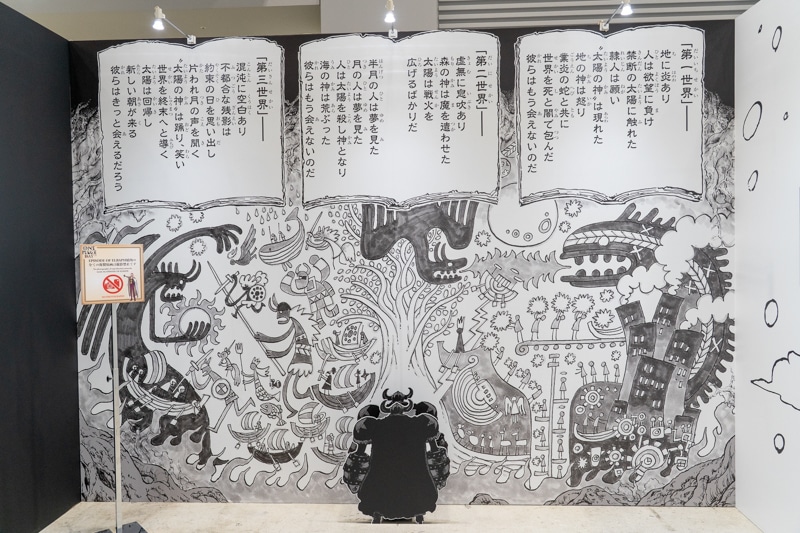 「第一世界」――
地に炎あり
人は欲望に負け
禁断の太陽に触れた
隷人は願い
“太陽の神”は現れた
地の神は怒り
業炎の蛇と共に
世界を死と闇で包んだ
彼らはもう会えないのだ
「第二世界」――
虚無に息吹あり
森の神は魔を遣わせた
太陽は戦火を
広げるばかりだ
半月の人は夢を見た
月の人は夢を見た
人は太陽を殺し神となり
海の神は荒ぶった
彼らはもう会えないのだ
「第三世界」――
混沌に空白あり
不都合な残影は
約束の日を思い出し
片われ月の声を聞く
“太陽の神”は踊り、笑い
世界を終末へと導く
太陽は回帰し
新しい朝が来る
彼らはきっと会えるだろう